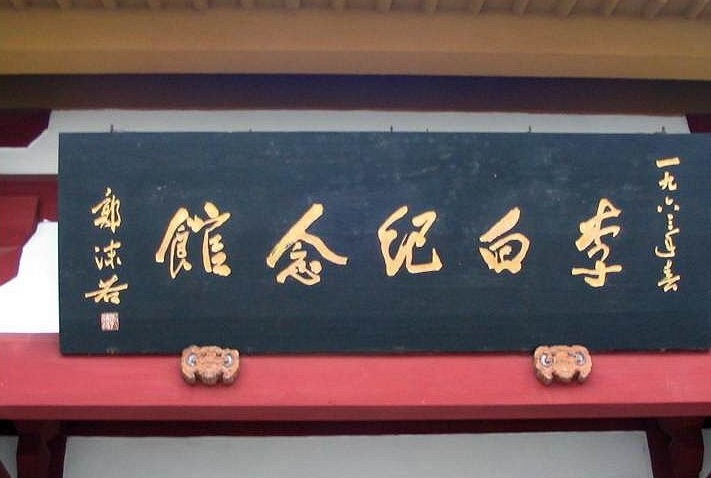 一九六三年春
李白紀念館
郭沫若